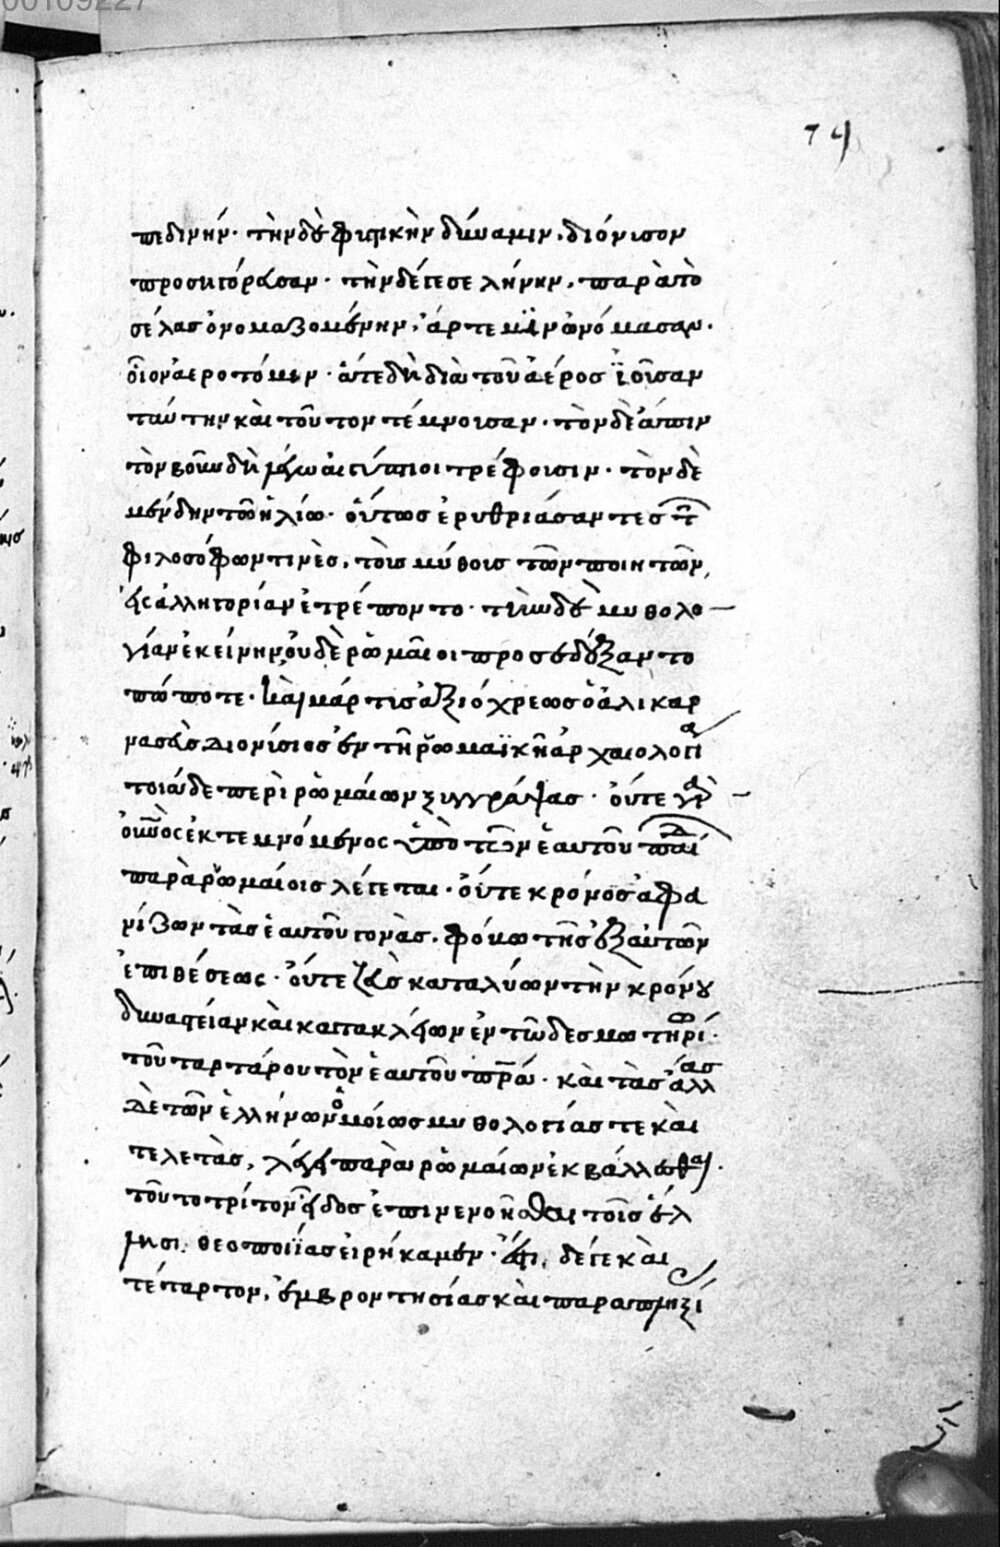 00109227
74
πεδινήν· τὴν δὲ φυτικὴν δύναμιν, διόνισον
προσηγόρευσαν· τὴν δέ γε σελήνην, παρὰ τὸ
σέλας ὀνομαζομένην, ἄρτεμϊν ὠνόμασαν·
οἷον ἀεροτόμιν· ἅτε δὴ διὰ τοῦ ἀέρος ϊοῦσαν
ταύτην καὶ τοῦτον τέμνουσαν· τὸν δὲ ἄπιν
τὸν βοῦν δὴ λέγω αἰγύπτιοι τρέφουσιν· τὸν δὲ
μένδην τῶ ἡλίω· οὕτως ἐρυθριάσαντες τ
φιλοσόφων τινὲς, τοῖς μύθοις τῶν ποιητῶν,
εἰς ἀλληγορίαν ἐτρέποντο· τὴν δὲ μυθολο
γίαν ἐκείνην οὐδὲ ῥωμαῖοι προσεδέξαντο
πώποτε· καὶ μάρτις ἀξιόχρεως ὁ ἁλικαρ
νασεὺς διονίσιος ἐν τῆ ῥωμαϊκῆ ἀρχαιολογία
τοιάδε περὶ ῥωμαίων ξυγγράψας· οὔτε γὰρ
οὐνος ἐκτεμνόμενος ὑπὸ τῶν ἑαυτοῦ παί
παρὰ ῥωμαίοις λέγεται· οὔτε κρόνος ἀφα
νίζων τὰς ἑαυτοῦ γονὰς, φόβω τῆς ἐξ αὐτῶν
ἐπιθέσεως· οὔτε ζεὺς καταλύων τὴν κρόνου
δυναστείαν καὶ κατακλείων ἐν τῶ δεσμωτηρίω
τοῦ ταρτάρου τὸν ἑαυτοῦ πρα· καὶ τὰς ἄλλας
δὲ τῶν ἑλλήνων ὁμοίως μυθολογίας τε καὶ
τελετὰς, λέγει παρὰ ῥωμαίων ἐκβάλλεσθαι·
τοῦτο τρίτον εἶδος ἐπινενοῆσθαι τοῖς ἕλ
λησι. θεοποιΐας εἰρήκαμεν· ἔστι δέ γε καὶ
τέταρτον, ἐμβροντησίας καὶ παραπληξί